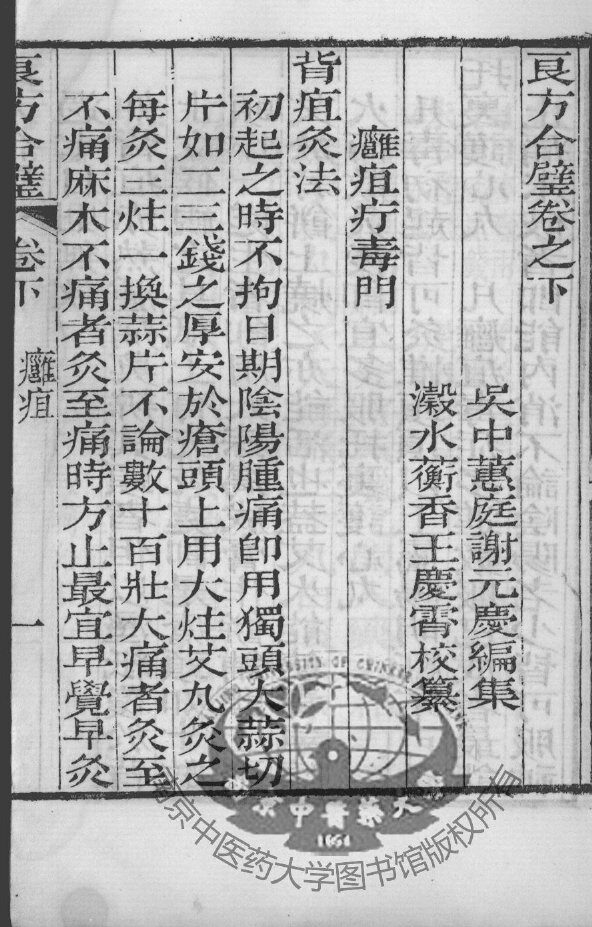 良方合璧卷之下
吳中蕙庭謝元慶編集
瀔水蘅香王慶霄校纂
癰疽疔毒門
背疽灸法
初起之時不拘日期陰陽腫痛卽用獨頭大蒜切
片如二三錢之厚安於瘡頭上用大炷艾丸灸之
每灸三炷一換蒜片不論數十百壯大痛者灸至
不痛麻木不痛者灸至痛時方止最宜早覺早灸
良方合璧
卷下
癰疽
一
南京中医药大学图书馆版权所有
南京中醫藥大學
1954